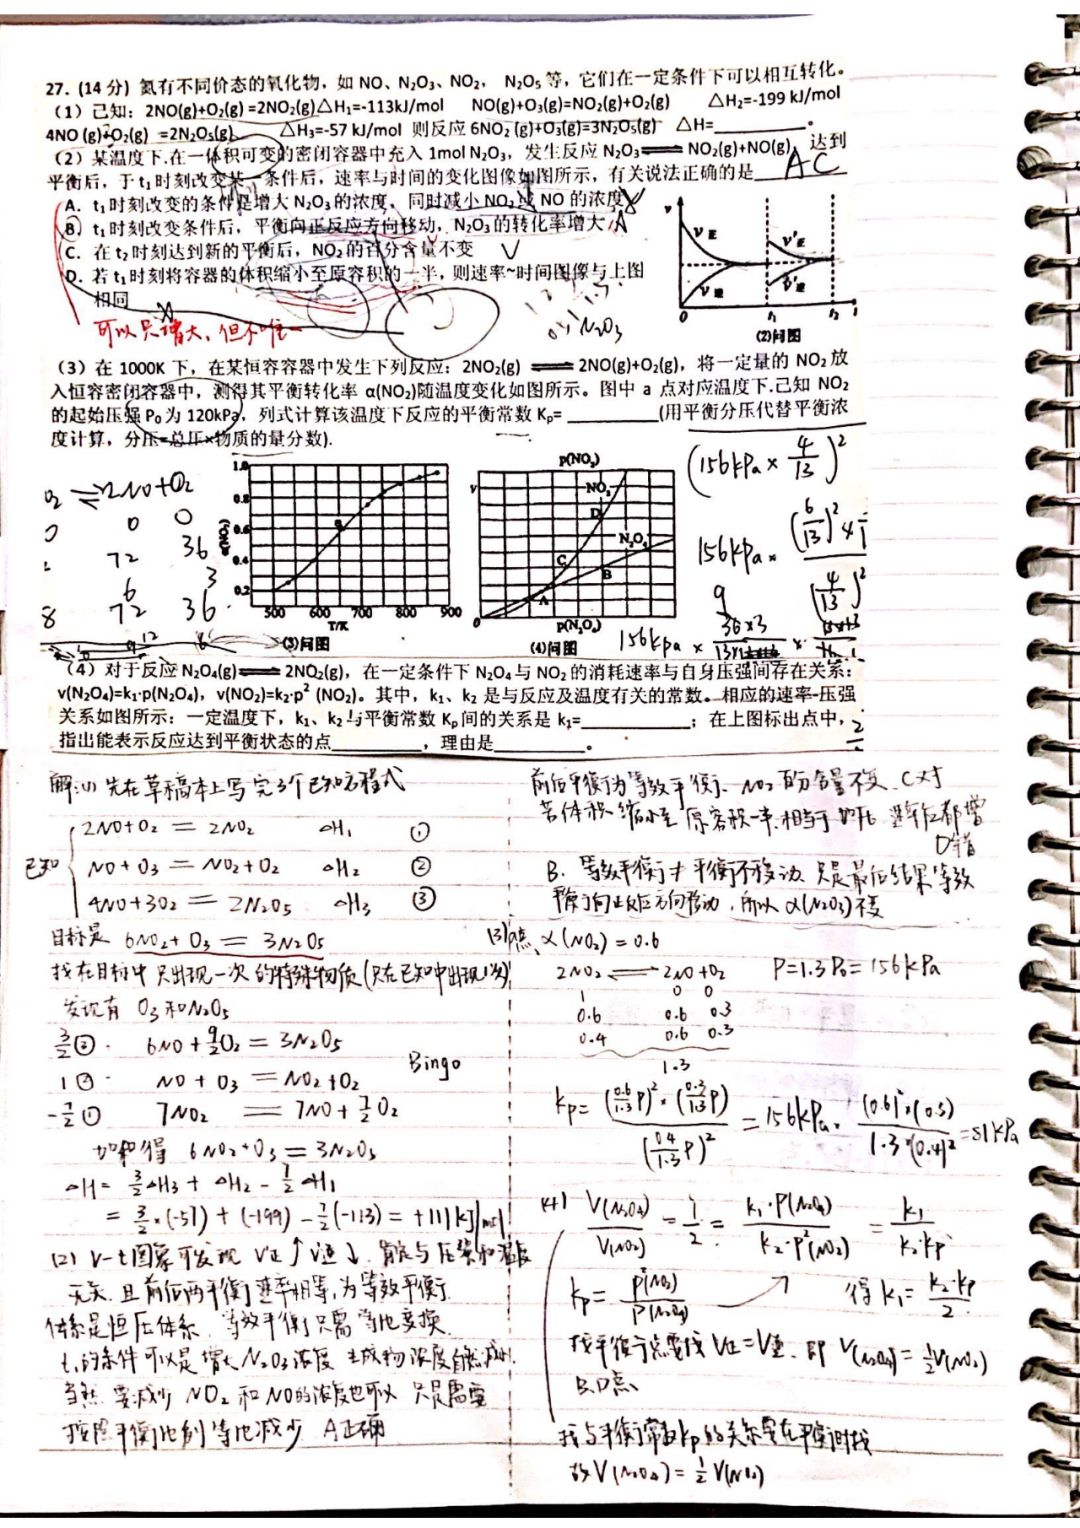 27. (14 分) 氮有不同价态的氧化物，如 NO、N₂O₃、NO₂， N₂O₅ 等，它们在一定条件下可以相互转化。
（1）己知：2NO(g)+O₂(g) =2NO₂(g)△H₁=-113kJ/mol NO(g)+O₃(g)=NO₂(g)+O₂(g) △H₂=-199 kJ/mol
4NO (g)+O₂(g) =2N₂O₅(g) △H₃=-57 kJ/mol 则反应 6NO₂ (g)+O₃(g)=3N₂O₅(g) △H=________。
（2）某温度下.在一体积可变的密闭容器中充入 1mol N₂O₃，发生反应 N₂O₃⇌ NO₂(g)+NO(g)，达到
平衡后，于 t₁ 时刻改变某一条件后，速率与时间的变化图像如图所示，有关说法正确的是 AC
A. t₁ 时刻改变的条件是增大 N₂O₃ 的浓度，同时减小 NO₂ 或 NO 的浓度
B. t₁ 时刻改变条件后，平衡向正反应方向移动，N₂O₃ 的转化率增大
C. 在 t₂ 时刻达到新的平衡后，NO₂ 的百分含量不变 √
D. 若 t₁ 时刻将容器的体积缩小至原容积的一半，则速率~时间图像与上图
相同
可以只增大，但不唯一
N₂O₃
v
v正
v逆
v'正
v'逆
0 t₁ t₂ t
(2)问图
（3）在 1000K 下，在某恒容容器中发生下列反应：2NO₂(g) ⇌ 2NO(g)+O₂(g)，将一定量的 NO₂ 放
入恒容密闭容器中，测得其平衡转化率 α(NO₂)随温度变化如图所示。图中 a 点对应温度下.己知 NO₂
的起始压强 P₀ 为 120kPa，列式计算该温度下反应的平衡常数 Kₚ=________(用平衡分压代替平衡浓
度计算，分压=总压×物质的量分数).
⇌2NO+O₂
0 0
72 36
6 3
8 72 36
1.0
0.8
0.6
0.4
0.2
α(NO₂)
a
500 600 700 800 900
T/K
(3)问图
p(NO₂)
v
NO₂
D
N₂O₄
C
B
A
0
p(N₂O₄)
(4)问图
(156kPa × 4/13)²
156kPa ×
156kpa ×
（4）对于反应 N₂O₄(g)⇌ 2NO₂(g)，在一定条件下 N₂O₄ 与 NO₂ 的消耗速率与自身压强间存在关系：
v(N₂O₄)=k₁·p(N₂O₄)，v(NO₂)=k₂·p² (NO₂)。其中，k₁、k₂ 是与反应及温度有关的常数。相应的速率-压强
关系如图所示：一定温度下，k₁、k₂ 与平衡常数 Kₚ 间的关系是 k₁=________；在上图标出点中，
指出能表示反应达到平衡状态的点________，理由是________。
解:(1) 先在草稿本上写完3个已知方程式
已知
2NO+O₂ = 2NO₂ △H₁ ①
NO + O₃ = NO₂+O₂ △H₂ ②
4NO+3O₂ = 2N₂O₅ △H₃ ③
目标是 6NO₂+ O₃ = 3N₂O₅
找在目标中只出现一次的特殊物质(只在已知中出现1次)
发现有 O₃ 和N₂O₅
3/2③· 6NO + 9/2O₂ = 3N₂O₅
1②· NO + O₃ = NO₂+O₂ Bingo
-7/2① 7NO₂ = 7NO + 7/2O₂
加和得 6NO₂+O₃ = 3N₂O₅
△H= 3/2△H₃ + △H₂ - 7/2△H₁
= 3/2×(-57) + (-199) - 7/2(-113) = +111 kJ/mol
(2) V-t图象可发现 V正↑ V逆↓. 肯定与压强和温度
无关. 且前后两平衡速率相等, 为等效平衡.
体系是恒压体系. 等效平衡只需等比变换.
t₁的条件可以是增大N₂O₃浓度 生成物浓度自然减小.
当然 要减少 NO₂ 和NO的浓度也可以 只是需要
按照平衡比例等比减少 A正确
前后平衡为等效平衡. NO₂百分含量不变. C对
若体积缩小至原容积一半. 相当于加压. 速率应都增
D错
B. 等效平衡≠平衡不移动. 只是最后结果等效
平衡向正反应方向移动, 所以 α(N₂O₃)不变
(3) a点 α(NO₂) = 0.6
2NO₂ ⇌ 2NO +O₂ P=1.3P₀=156kPa
1 0 0
0.6 0.6 0.3
0.4 0.6 0.3
1.3
Kp= (0.6/1.3 P)²·(0.3/1.3 P) / (0.4/1.3 P)² = 156kPa· (0.6)²×(0.3) / 1.3×(0.4)² =81kPa
(4) V(N₂O₄)/V(NO₂) = 1/2 = k₁·P(N₂O₄) / k₂·P²(NO₂) = k₁/k₂·kp
Kp= P²(NO₂)/P(N₂O₄) 得 k₁= k₂·kp/2
找平衡点要找 V正=V逆. 即 V(N₂O₄)= 1/2V(NO₂)
B.D点
找与平衡常数Kp的关系要在平衡时找
故V(N₂O₄) = 1/2 V(NO₂)